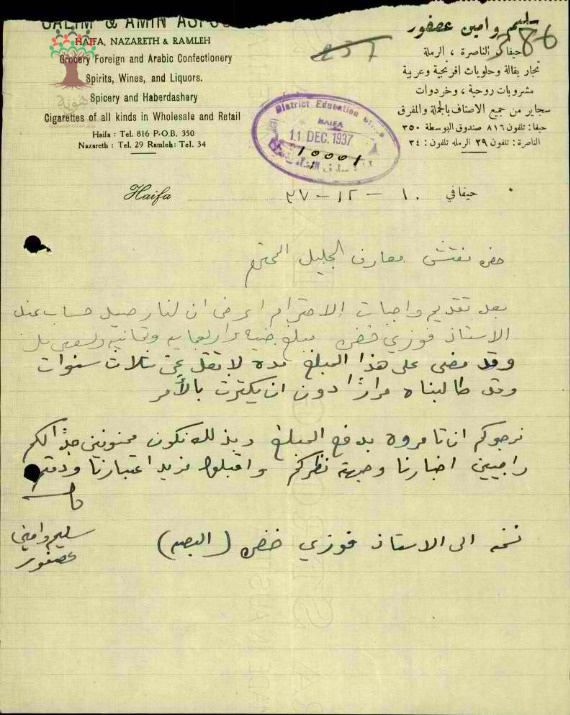 SALIM & AMIN ASFOUR
HAIFA, NAZARETH & RAMLEH
Grocery Foreign and Arabic Confectionery
Spirits, Wines, and Liquors.
Spicery and Haberdashery
Cigarettes of all kinds in Wholesale and Retail
Haifa : Tel. 816 P-O.B. 350
Nazareth : Tel. 29 Ramleh: Tel. 34
سليم وامين عصفور
حيفا، الناصرة، الرملة
تجار بقالة وحلويات افرنجية وعربية
مشروبات روحية، وخردوات
سجاير من جميع الاصناف بالجملة والمفرق
حيفا: تلفون ٨١٦ صندوق البوسطة ٣٥٠
الناصرة: تلفون ٢٩ الرملة تلفون: ٣٤
86
257
District Education Office
HAIFA
11 DEC. 1937
10001
Haifa
حيفا في ١٠-١٢-٣٧
حضرة مفتش معارف الجليل المحترم
بعد تقديم واجبات الاحترام اعرض ان لنا رصيد حساب عند
الاستاذ فوزي خضره مبلغ جنيه
وقد مضى على هذا المبلغ مدة لا تقل عن ثلاث سنوات
وقد طالبناه مرارًا دون ان يكترث بالأمر
نرجوكم ان تأمروه بدفع المبلغ وبذلك نكون ممنونين جدًا لكم
راجيين اخبارنا وجهة نظركم واقبلوا مزيد اعتبارنا ودمتم
سليم وامين
عصفور
نسخه الى الاستاذ فوزي خضره (البصه)